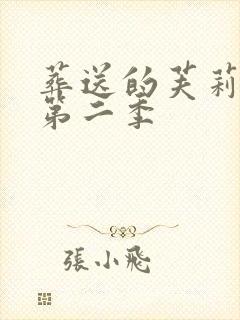 葬送的芙莉
第二季
張小飛